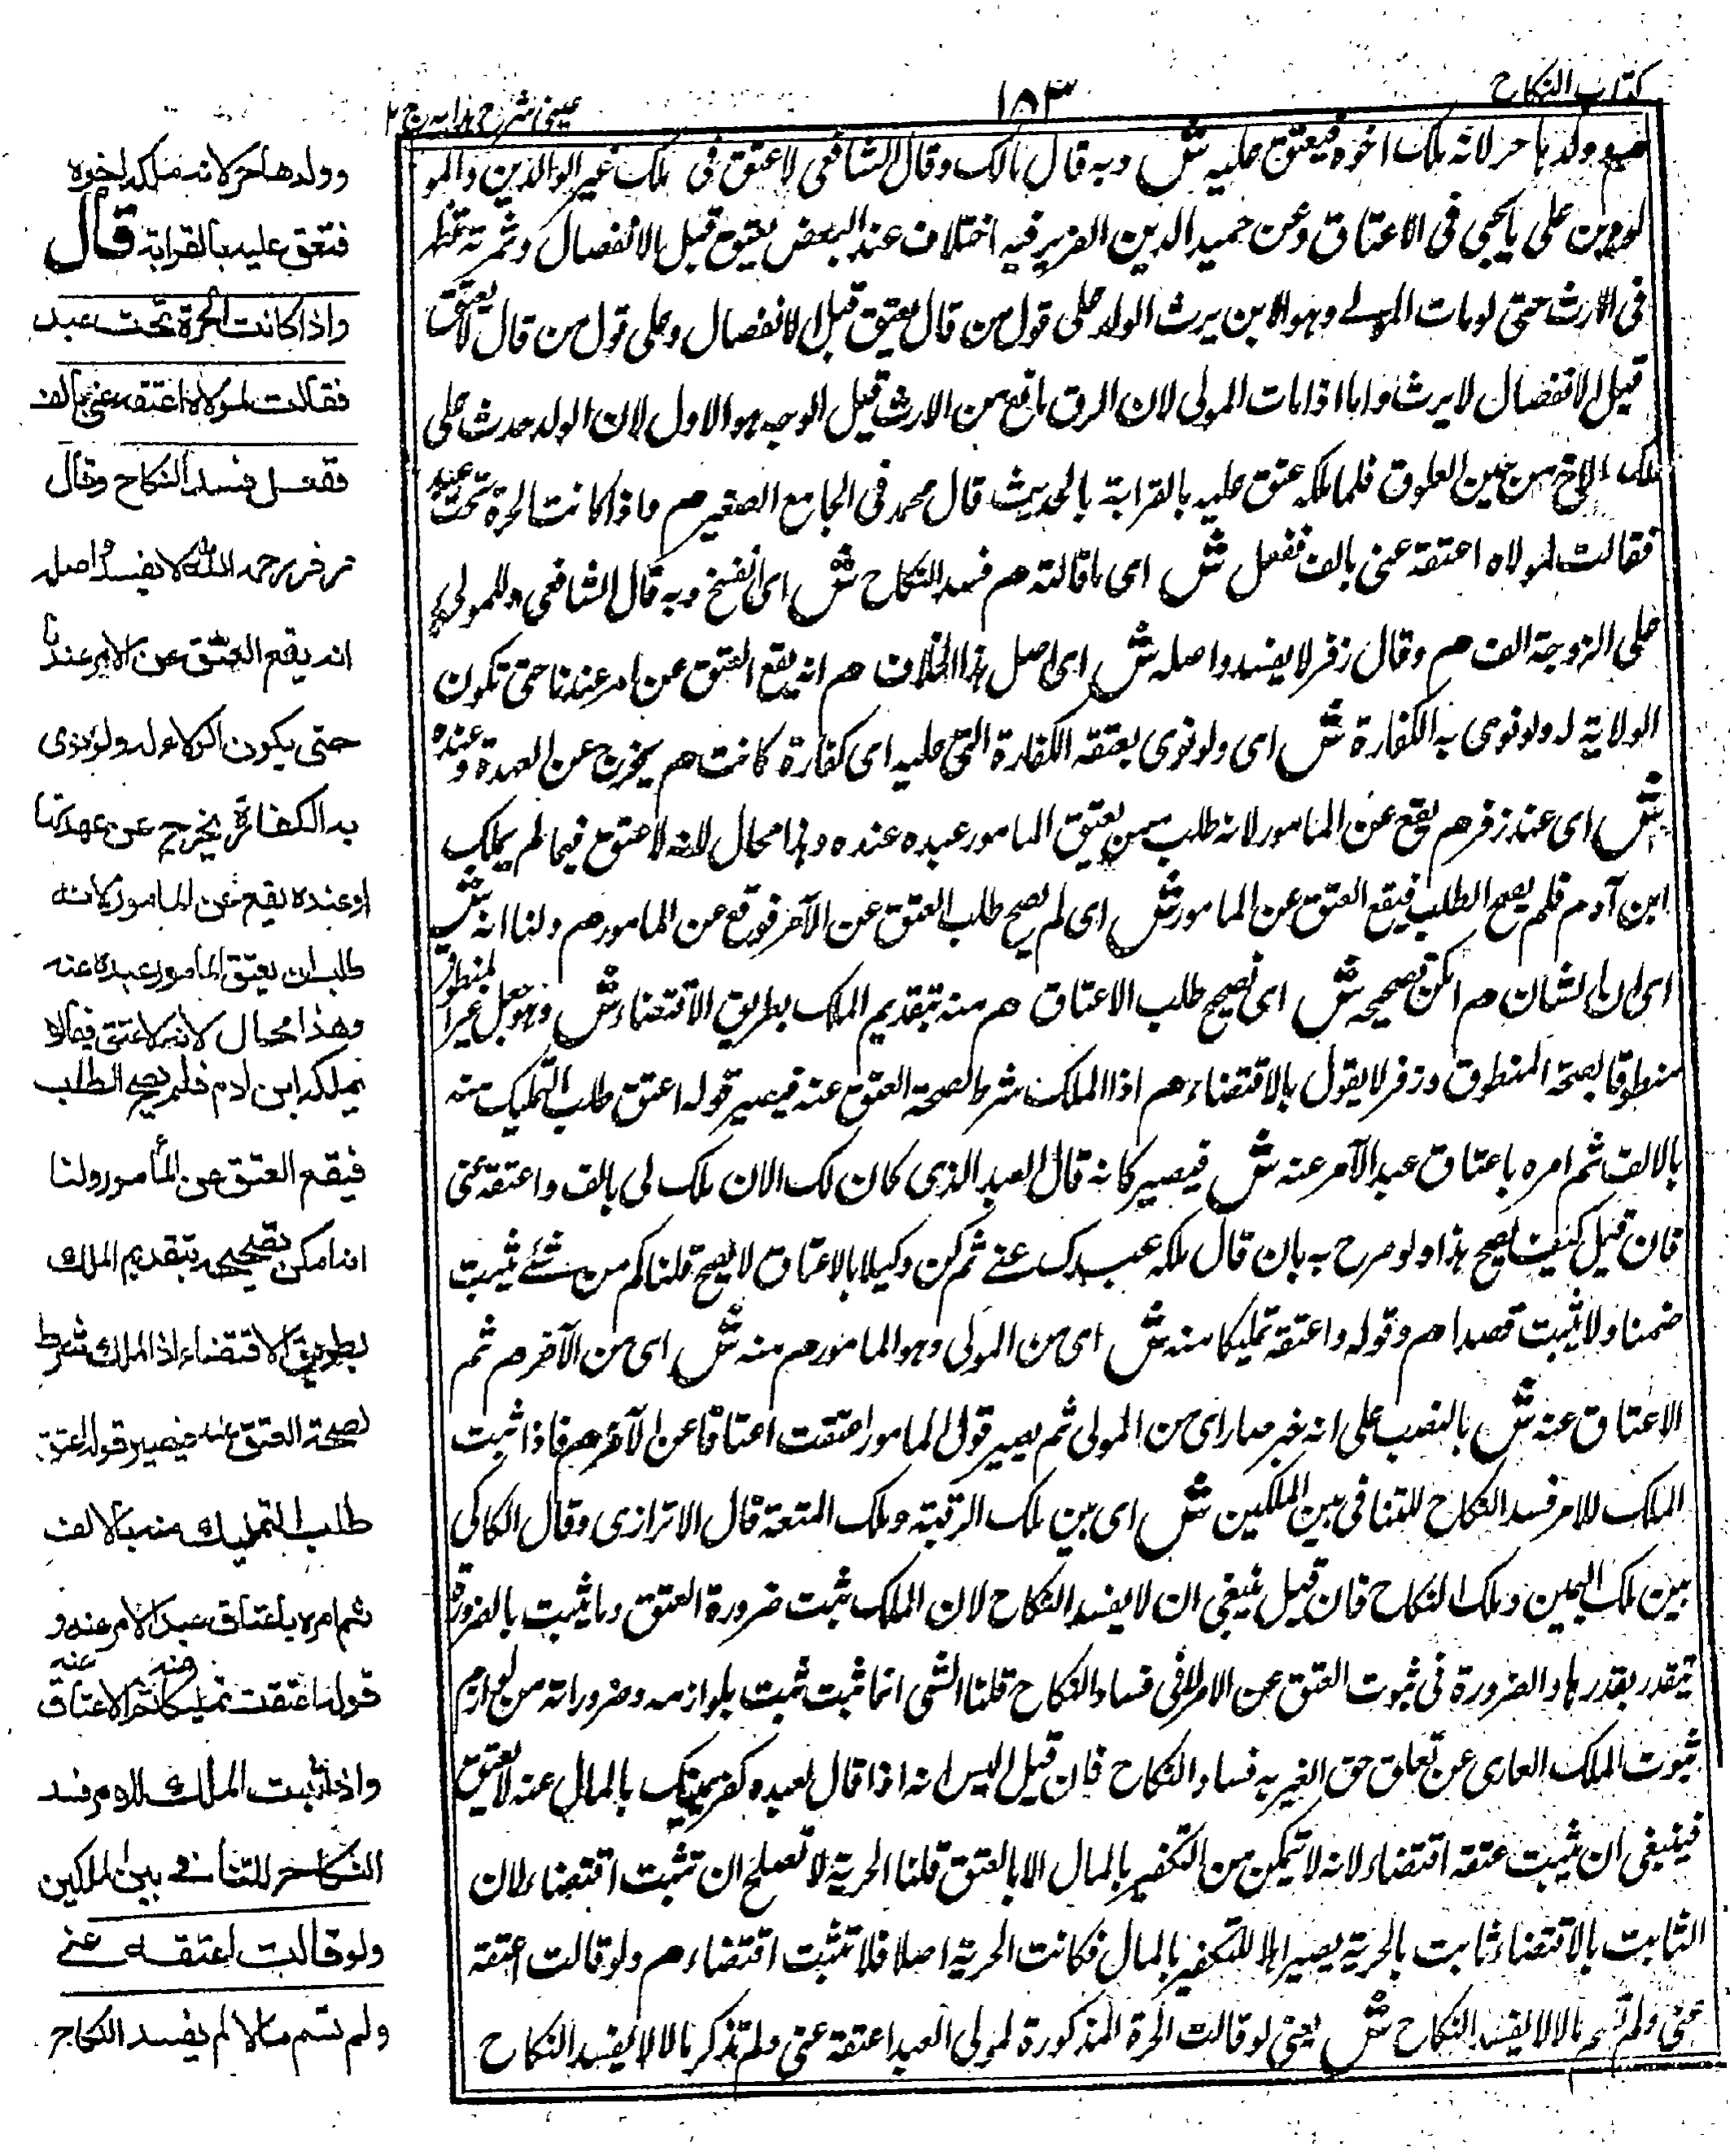 كتاب النكاح
١٥٣
عينى شرح هدايه ج ٢
وولدها حر لانه ملك اخوه فيعتق عليه ش وبه قال مالك وقال الشافعى لا عتق فى ملك غير الوالدين والمو
لودين على ما يجى فى الاعتاق وعن حميد الدين الضرير فيه اختلاف عند البعض يعتق قبل الانفصال وثمرته تظهر
فى الارث حتى لو مات المولے وهو الابن يرث الولد على قول من قال يعتق قبل الانفصال وعلى قول من قال لا يعتق
قبل الانفصال لا يرث واما اذا مات المولى لان الرق مانع من الارث قيل الوجه هو الاول لان الولد حدث على
ملك الاخ من حين العلوق فلما ملكه عتق عليه بالقرابة بالحديث قال محمد فى الجامع الصغير هم واذا كانت الحرة تحت عبد
فقالت لمولاه اعتقه عنى بالف ففعل ش اى ما قالته هم فسد النكاح ش اى انفسخ وبه قال الشافعى وللمولى
على الزوجة الف هم وقال زفر لا يفسد واصله ش اى اصل هذا الخلاف هم انه يقع العتق عن امر عندنا حتى تكون
الولاية له ولو نوى به الكفارة ش اى ولو نوى بعتقه الكفارة التى عليه اى كفارة كانت هم يخرج عن العهدة وعنده
ش اى عند زفر هم يقع عن المامور لانه طلب ممن يعتق المامور عبده عنده وهذا محال لانه لا عتق فيما لم يملك
ابن آدم فلم يصح الطلب فيقع العتق عن المامور ش اى لم يصح طلب العتق عن الآمر فوقع عن المامور هم ولنا انه ش
اى ان الشان هم امكن تصحيحه ش اى تصحيح طلب الاعتاق هم منه بتقديم الملك بطريق الاقتضاء ش وهو جعل غير المنطوق
منطوقا بصحة المنطوق وزفر لا يقول بالاقتضاء هم اذا الملك شرط لصحة العتق عنه فيصير قوله اعتق طلب التمليك منه
بالالف ثم امره باعتاق عبد الآمر عنه ش فيصير كانه قال العبد الذى كان لك الان ملك لى بالف واعتقه عنى
فان قيل كيف يصح هذا ولو صرح به بان قال ملكه عبدك عنے ثم كن وكيلا بالاعتاق لا يصح قلنا كم من شئے يثبت
ضمنا ولا يثبت قصدا هم وقوله واعتقه تمليكا منه ش اى من المولى وهو المامور هم منه ش اى من الآمر هم ثم
الاعتاق عنه ش بالنصب على انه خبر صار اى من المولى ثم يصير قول المامور اعتقت اعتاقا عن الآمر هم فاذا ثبت
الملك للامر فسد النكاح للتنافى بين الملكين ش اى بين ملك الرقبة وملك المتعة قال الاترازى وقال الكاكى
بين ملك اليمين وملك النكاح فان قيل ينبغى ان لا يفسد النكاح لان الملك ثبت ضرورة العتق وما ثبت بالضرورة
يتقدر بقدرها والضرورة فى ثبوت العتق عن الامر لا فى فساد النكاح قلنا الشى انما ثبت ثبت بلوازمه وضروراته من لوازم
ثبوت الملك العارى عن تعلق حق الغير به فساد النكاح فان قيل اليس انه اذا قال لعبده كفر يمينك بالمال عنه لا يعتق
فينبغى ان يثبت عتقه اقتضاء لانه لا يتمكن من التكفير بالمال الا بالعتق قلنا الحرية لا تصلح ان تثبت اقتضاء لان
الثابت بالاقتضاء ثابت بالحرية يصير اهلا للتكفير بالمال فكانت الحرية اصلا فلا تثبت اقتضاء هم ولو قالت اعتقه
عنى ولم تسم مالا لا يفسد النكاح ش يعنى لو قالت الحرة المذكورة لمولى العبد اعتقه عنى ولم تذكر مالا لا يفسد النكاح
وولدها حر لانه ملكه اخوه
فتعق عليه بالقرابة قال
واذا كانت الحرة تحت عبد
فقالت لمولاه اعتقه عنى بالف
ففعل فسد النكاح وقال
زفر رحمه الله لا يفسد واصله
انه يقع العتق عن الامر عندنا
حتى يكون الولاء له ولو نوى
به الكفارة يخرج عن عهدتها
وعنده يقع عن المامور لانه
طلب ان يعتق المامور عبده عنه
وهذا محال لانه لا عتق فيما لا
يملكه ابن ادم فلم يصح الطلب
فيقع العتق عن المأمور ولنا
انه امكن تصحيحه بتقديم الملك
بطريق الاقتضاء اذ الملك شرط
لصحة العتق عنه فيصير قوله اعتق
طلب التمليك منه بالالف
ثم امره باعتاق عبد الامر عنه و
قوله اعتقت تمليكا منه ثم الاعتاق عنه
واذا ثبت الملك للامر فسد
النكاح للتنافے بين الملكين
ولو قالت اعتقه عنے
ولم تسم مالا لم يفسد النكاح